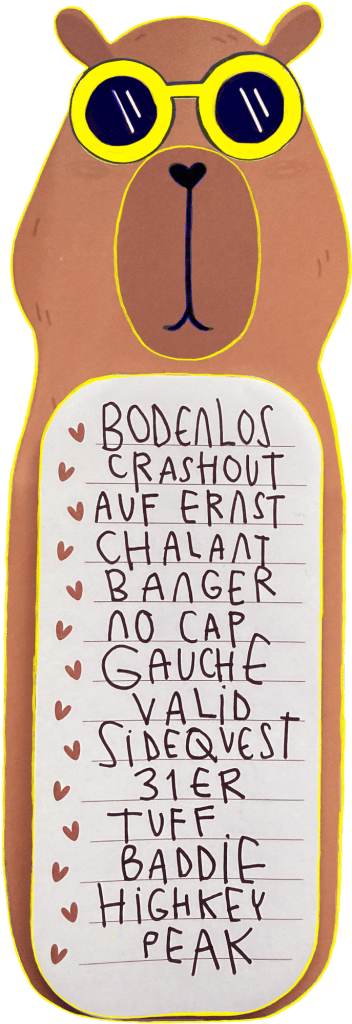 BODENLOS
CRASHOUT
AUF ERNST
CHALANT
BANGER
NO CAP
GAUCHE
VALID
SIDEQUEST
31ER
TUFF
BADDIE
HIGHKEY
PEAK